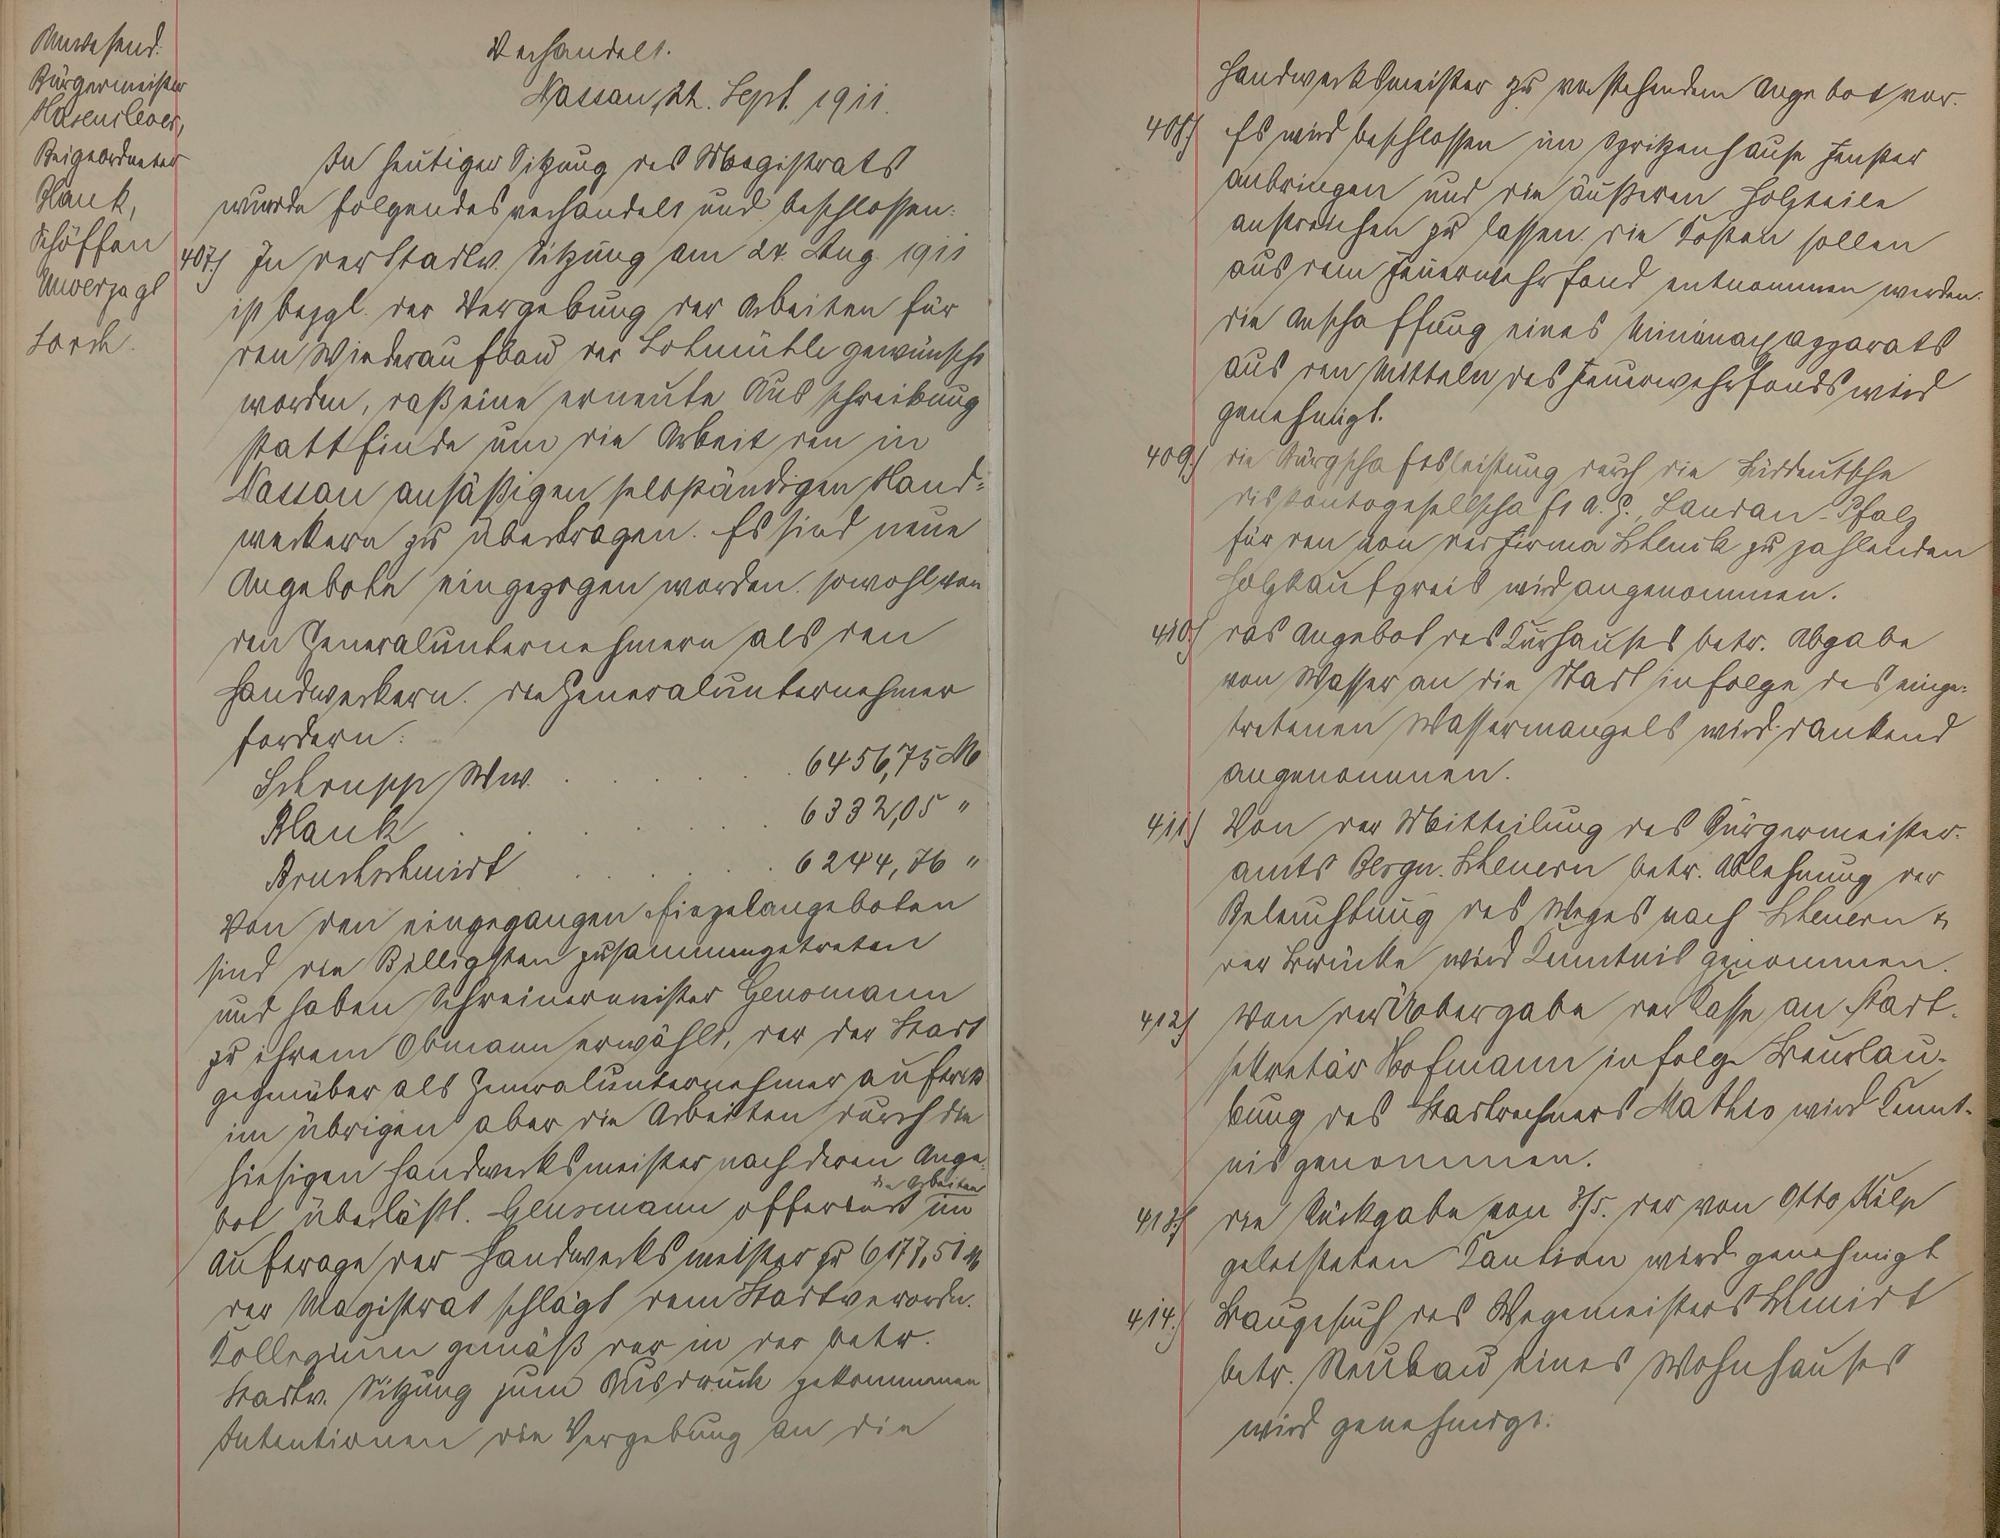 Anwesend:
Bürgermeister
Hasenclever,
Beigeordneter
Blank,
Schöffen
Unverzagt
Lorch.
Verhandelt.
Nassau, 22. Sept. 1911.
In heutiger Sitzung des Magistrats
wurde folgendes verhandelt und beschlossen:
407.) In der Stadtv. Sitzung am 24. Aug. 1911
ist bezgl. der Vergebung der Arbeiten für
den Wiederaufbau der Lohmühle gewünscht
worden, daß eine erneute Ausschreibung
stattfinde um die Arbeit den in
Nassau ansäßigen selbständigen Hand-
werkern zu übertragen. Es sind neue
Angebote eingezogen worden sowohl von
den Generalunternehmern als den
Handwerkern. Die Generalunternehmer
fordern:
Schrupp Wwe. 6456,75 M
Blank 6332,05 "
Bruchschmidt 6244,76 "
Von den eingegangen Einzelangeboten
sind die Billigsten zusammengetreten
und haben Schreinermeister Geusmann
zu ihrem Obmann erwählt, der der Stadt
gegenüber als Generalunternehmer auftritt
im übrigen aber die Arbeiten durch die
hiesigen Handwerksmeister nach deren Ange-
bot überläßt. Geusmann offeriert die Arbeiten im
Auftrage der Handwerksmeister zu 6177,51 M
Der Magistrat schlägt dem Stadtverordn.
Kollegium gemäß der in der betr.
Stadtv. Sitzung zum Ausdruck gekommenen
Intentionen die Vergebung an die
Handwerksmeister zu vorstehendem Angebot vor.
408.) Es wird beschlossen im Spritzenhause Fenster
anbringen und die äußeren Holzteile
anstreichen zu lassen. Die Kosten sollen
aus dem Feuerwehrfond entnommen werden.
Die Anschaffung eines Minimaxapparats
aus den Mitteln des Feuerwehrfonds wird
genehmigt.
409.) Die Bürgschaftsleistung durch die Süddeutsche
Diskontogesellschaft A. G., Landau-Pfalz
für den von der Firma Schenck zu zahlenden
Holzkaufpreis wird angenommen.
410.) Das Angebot des Kurhauses betr. Abgabe
von Wasser an die Stadt infolge des einge-
tretenen Wassermangels wird dankend
angenommen.
411.) Von der Mitteilung des Bürgermeister-
amts Bergn. Scheuern betr. Ablehnung der
Beleuchtung des Weges nach Scheuern &
der Brücke wird Kenntnis genommen.
412.) Von der Uebergabe der Kasse an Stadt-
sekretär Hofmann infolge Beurlau-
bung des Stadtrechners Mathes wird Kennt-
nis genommen.
413.) Die Rückgabe von 3/5. der von Otto Kilp
geleisteten Kaution wird genehmigt
414.) Baugesuch des Wegemeisters Schmidt
betr. Neubau eines Wohnhauses
wird genehmigt.